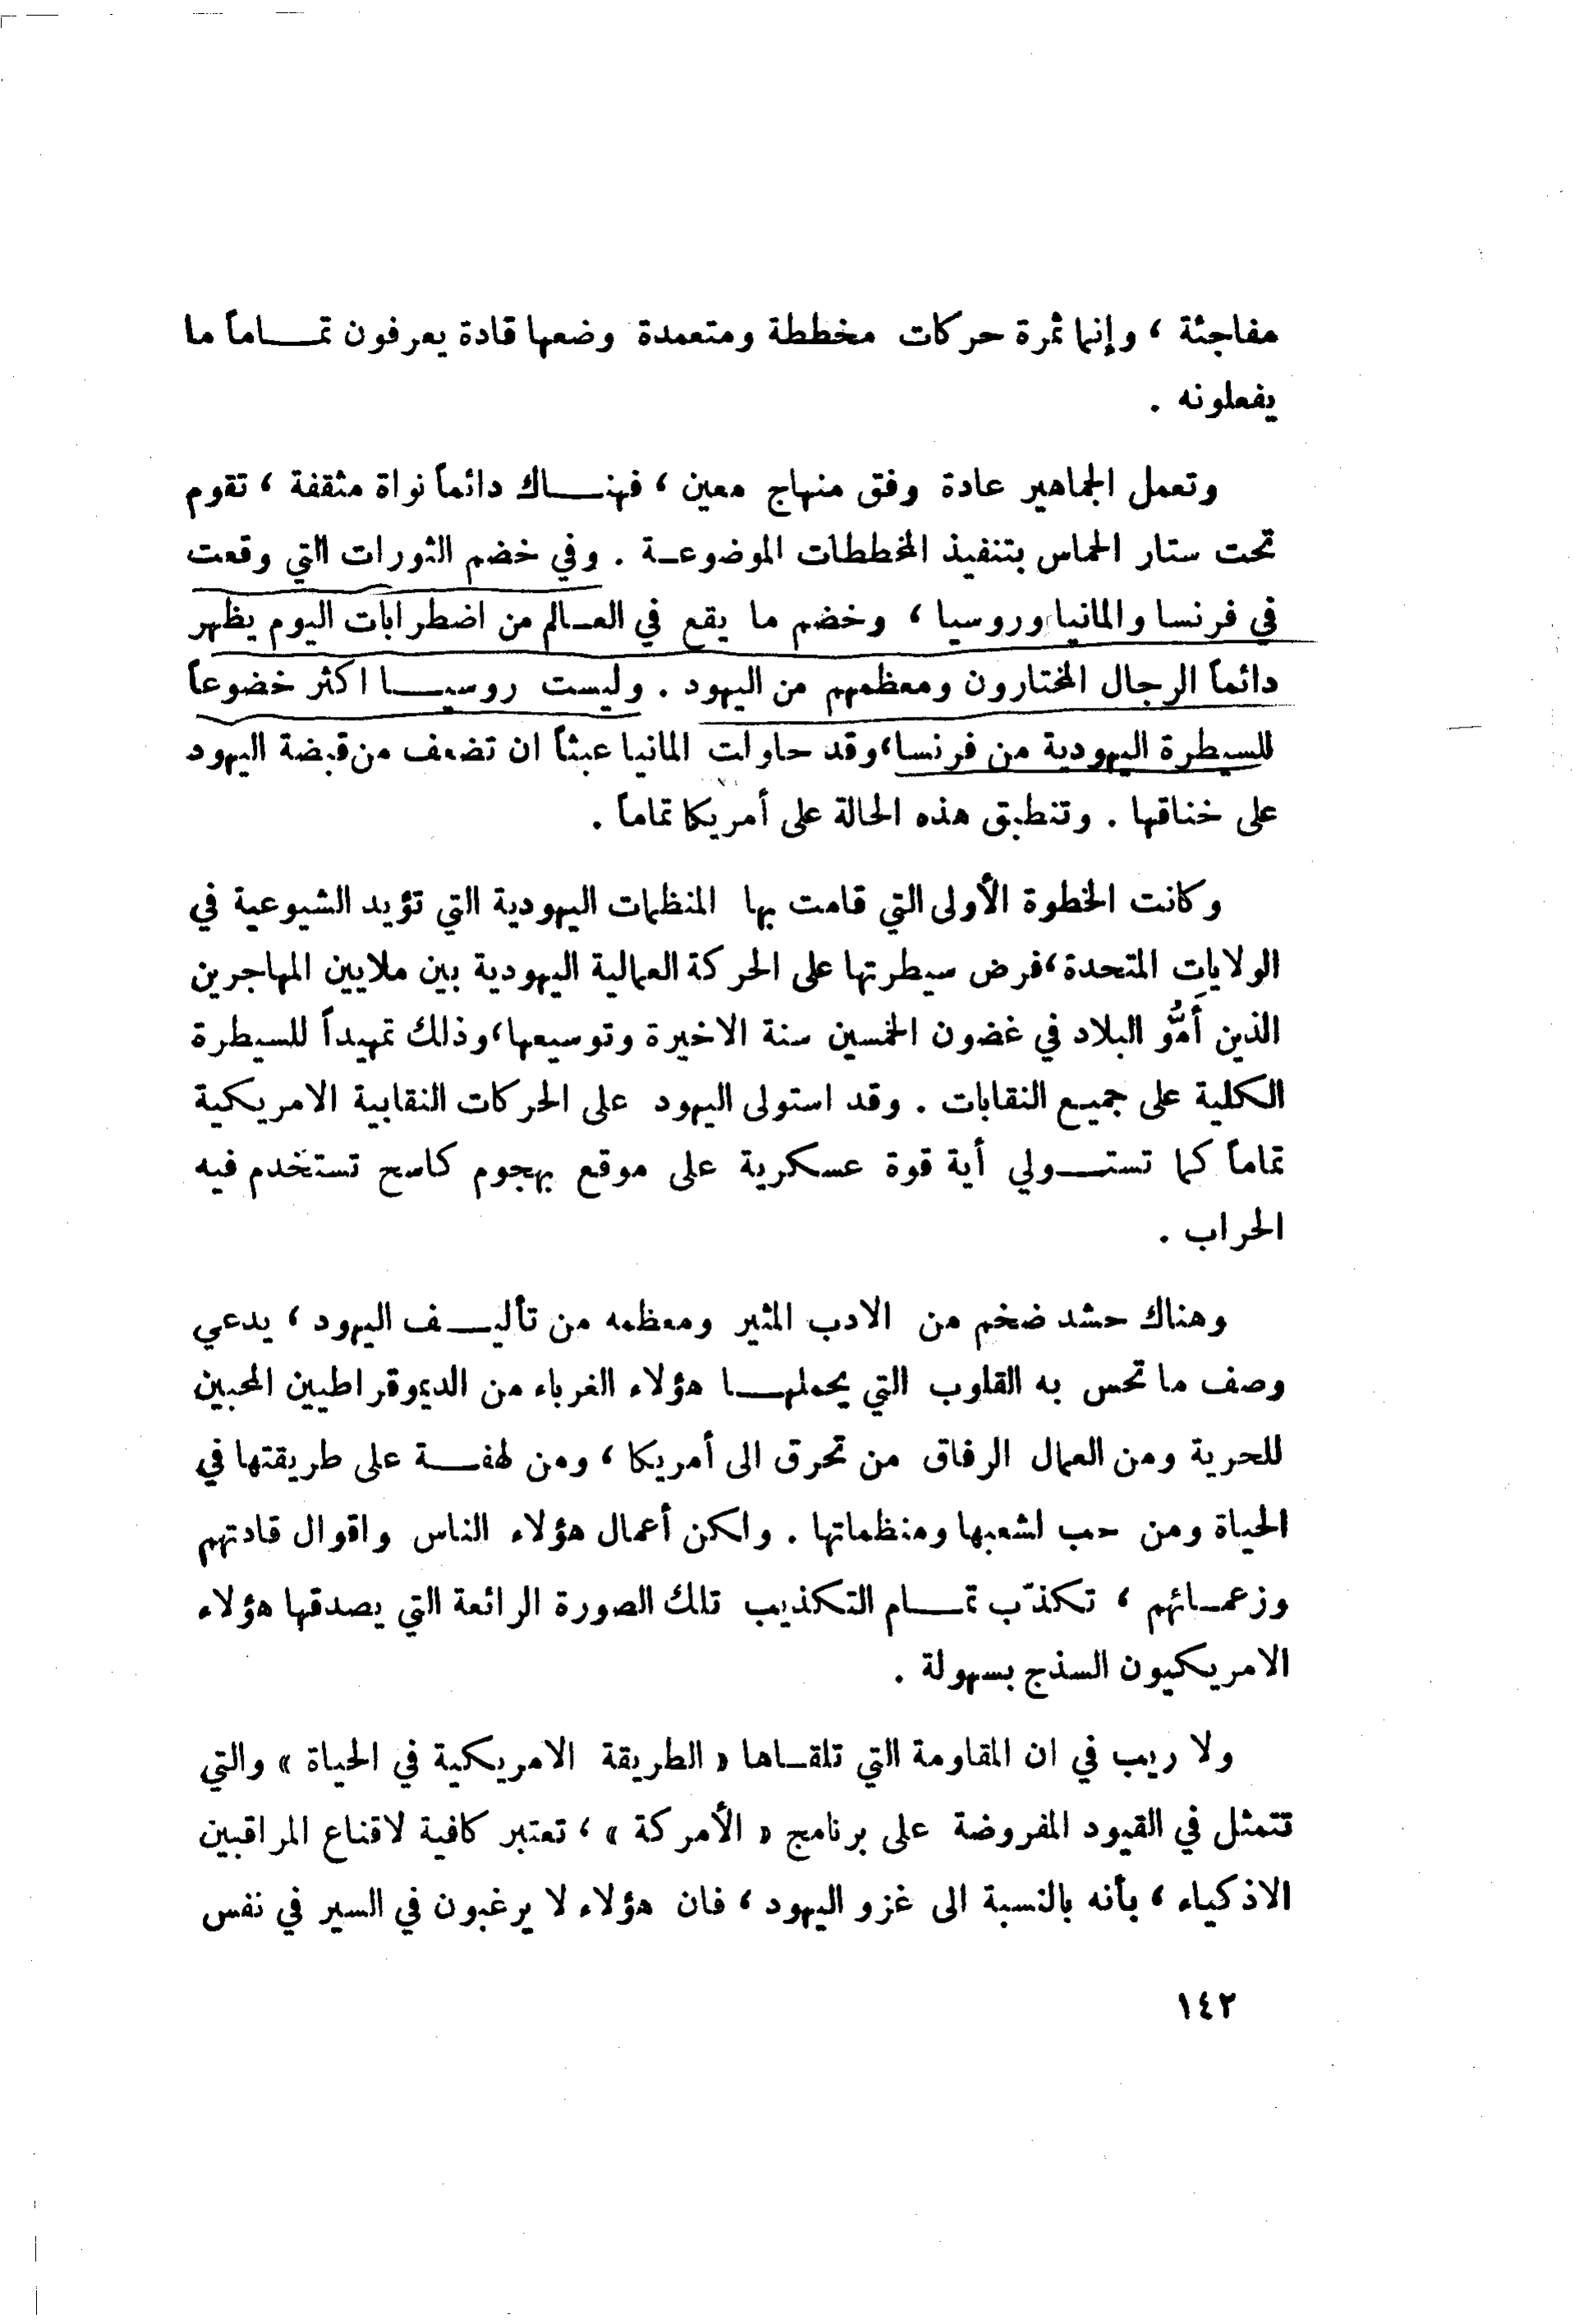 مفاجئة ، وإنما ثمرة حركات مخططة ومتعمدة وضعها قادة يعرفون تمـــاماً ما
يفعلونه .
وتعمل الجماهير عادة وفق منهاج معين ، فهنـــاك دائماً نواة مثقفة ، تقوم
تحت ستار الحماس بتنفيذ المخططات الموضوعـة . وفي خضم الثورات التي وقعت
في فرنسا والمانيا وروسيا ، وخضم ما يقع في العـالم من اضطرابات اليوم يظهر
دائماً الرجال المختارون ومعظمهم من اليهود . وليست روسيـــا اكثر خضوعاً
للسيطرة اليهودية من فرنسا،وقد حاولت المانيا عبثاً ان تضعف من قبضة اليهود
على خناقها . وتنطبق هذه الحالة على أمريكا تماماً .
وكانت الخطوة الأولى التي قامت بها المنظمات اليهودية التي تؤيد الشيوعية في
الولايات المتحدة،فرض سيطرتها على الحركة العمالية اليهودية بين ملايين المهاجرين
الذين أَمُّو البلاد في غضون الخمسين سنة الاخيرة وتوسيعها،وذلك تمهيداً للسيطرة
الكلية على جميع النقابات . وقد استولى اليهود على الحركات النقابية الامريكية
تماماً كما تستـــولي أية قوة عسكرية على موقع بهجوم كاسح تستخدم فيه
الحراب .
وهناك حشد ضخم من الادب المثير ومعظمه من تأليــف اليهود ، يدعي
وصف ما تحس به القلوب التي يحملهـــا هؤلاء الغرباء من الديموقراطيين المحبين
للحرية ومن العمال الرفاق من تحرق الى أمريكا ، ومن لهفـــة على طريقتها في
الحياة ومن حب لشعبها ومنظماتها . ولكن أعمال هؤلاء الناس واقوال قادتهم
وزعمـائهم ، تكذّب تمـــام التكذيب تلك الصورة الرائعة التي يصدقها هؤلاء
الامريكيون السذج بسهولة .
ولا ريب في ان المقاومة التي تلقـاها « الطريقة الامريكية في الحياة » والتي
تتمثل في القيود المفروضة على برنامج « الأمركة » ، تعتبر كافية لاقناع المراقبين
الاذكياء ، بأنه بالنسبة الى غزو اليهود ، فان هؤلاء لا يرغبون في السير في نفس
١٤٢